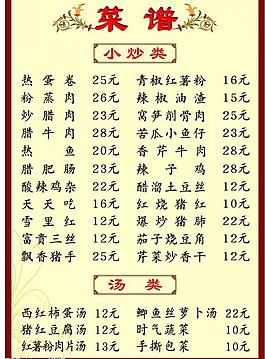 菜谱
小炒类
热蛋卷 25元 青椒红薯粉 16元
粉蒸肉 26元 辣椒油渣 15元
炒腊肉 23元 窝笋削骨肉 25元
腊牛肉 28元 苦瓜小鱼仔 23元
热鱼 20元 香芹牛肉 28元
腊肥肠 23元 辣子鸡 28元
酸辣鸡杂 22元 醋溜土豆丝 12元
天天吃 16元 红烧猪红 10元
雪里红 12元 爆炒猪肺 22元
富贵三丝 12元 茄子烧豆角 12元
飘香猪手 25元 芹菜炒香干 12元
汤类
西红柿蛋汤 12元 鲫鱼丝萝卜汤 22元
猪红豆腐汤 12元 时气蔬菜 10元
红薯粉肉片汤 13元 手撕包菜 10元